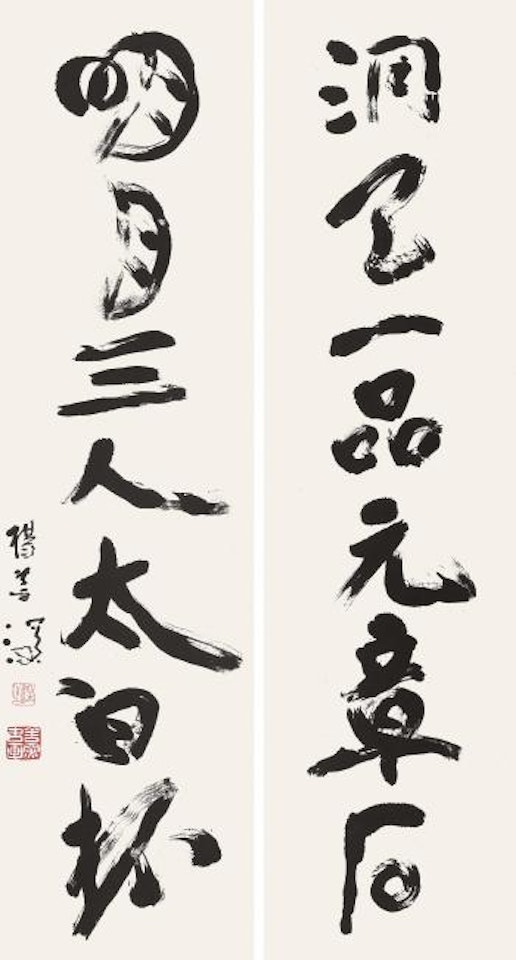 洞天一品元章石
明月三人太白杯
楊善深